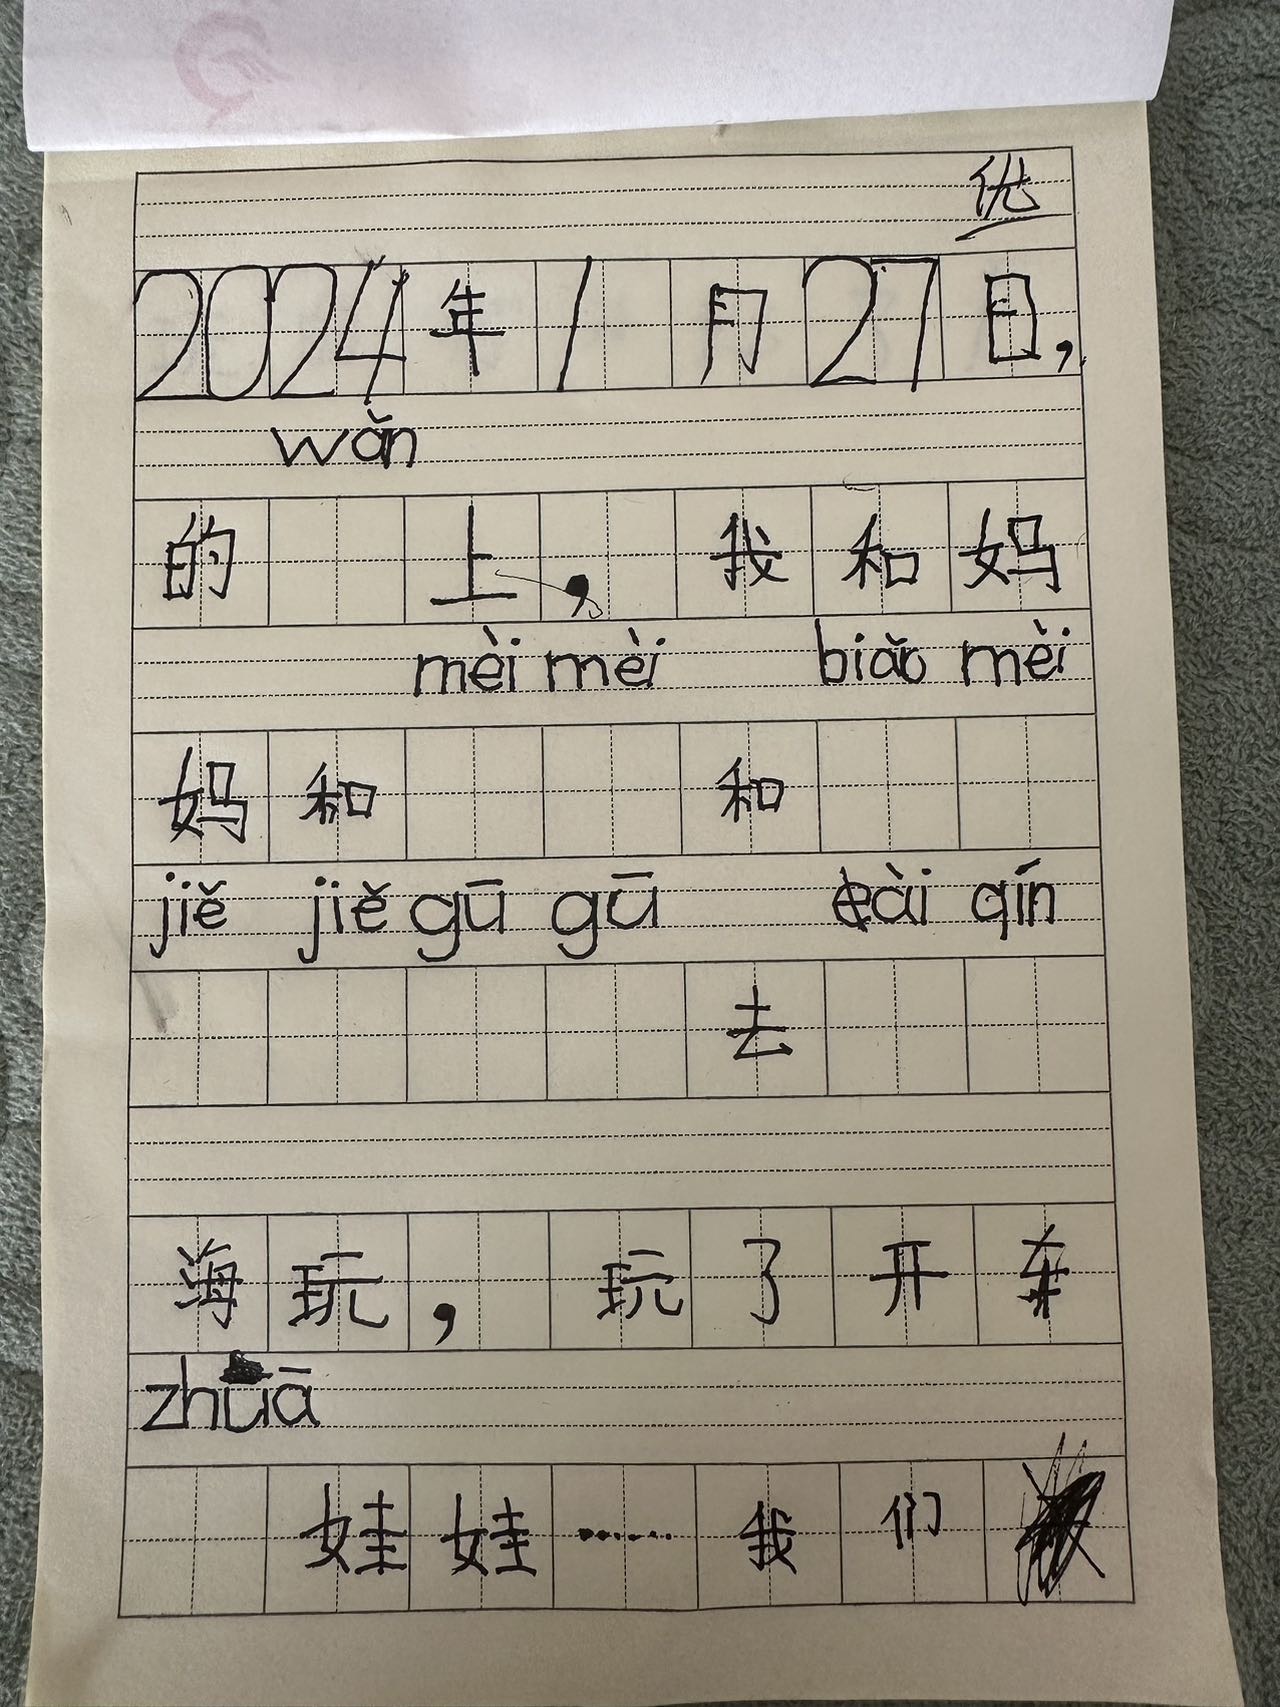 优
2024年1月27日,
wǎn
的 上, 我和妈
mèi mèi biǎo mèi
妈和 和
jiě jiě gū gū cài qín
去
海玩, 玩了开车
zhuā
娃娃……我们